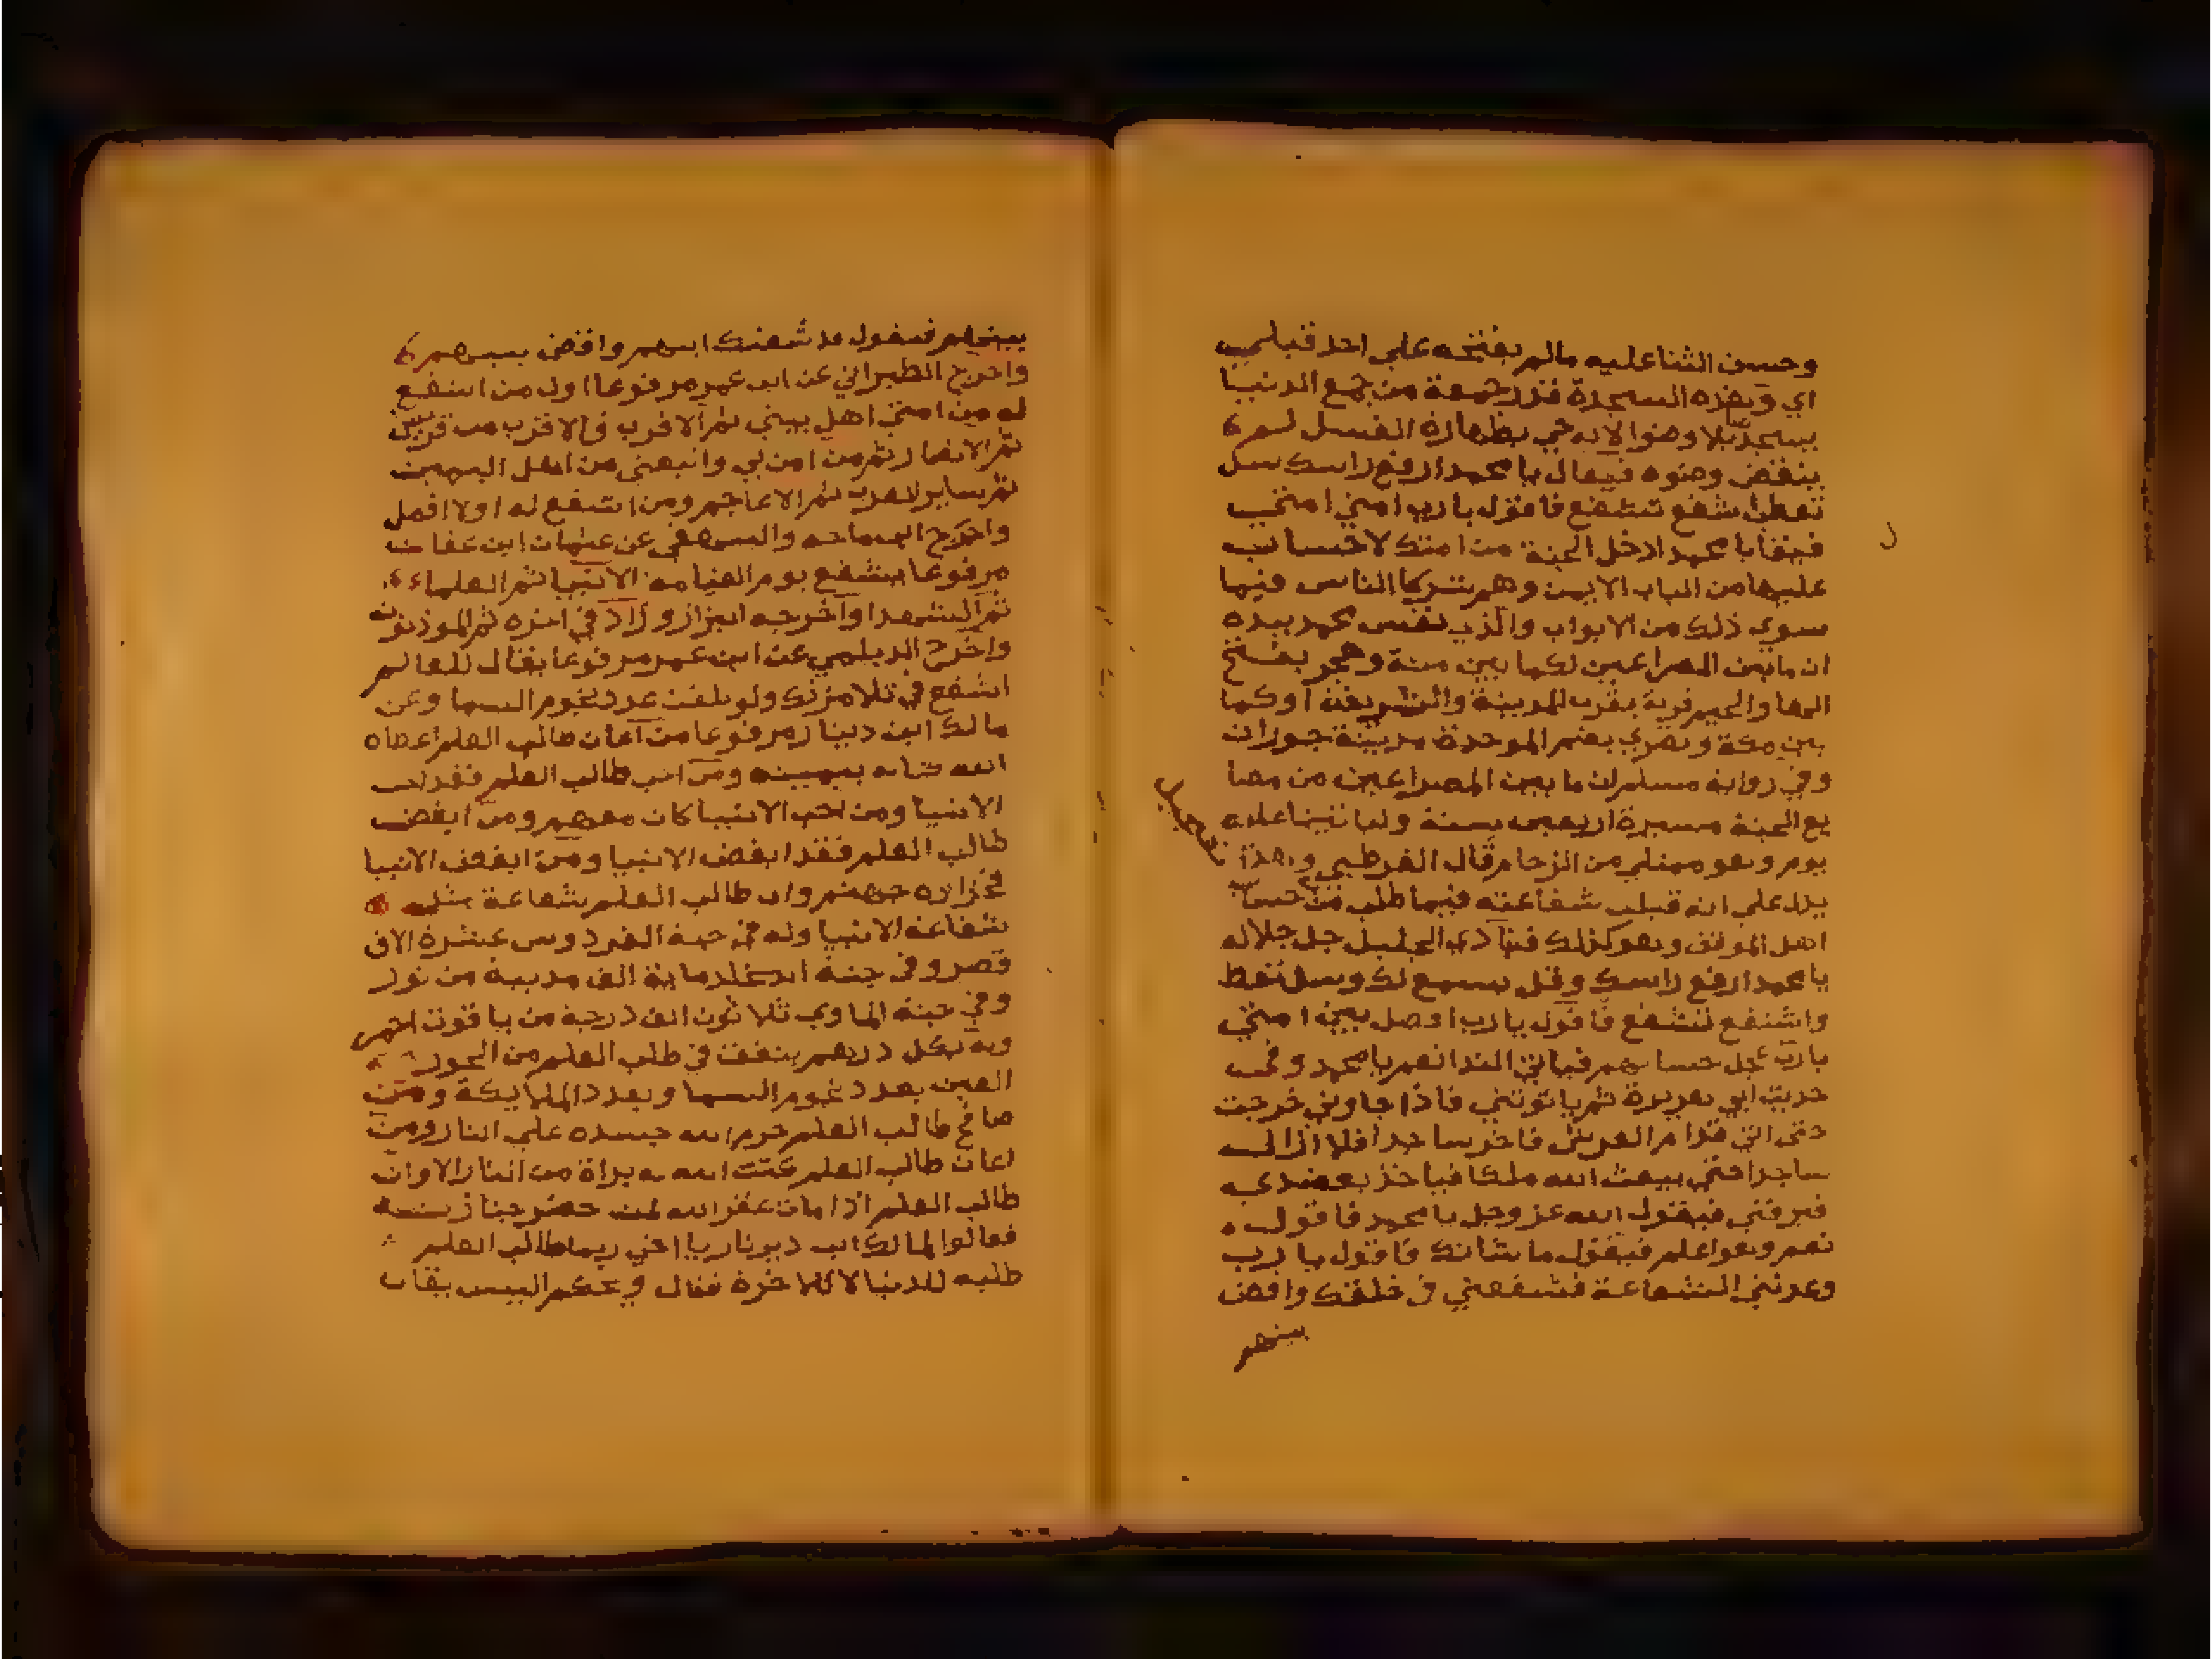 وحسن الثنا عليه مالم يفتحه علي احد قبلي
اي وهذه السجدة قدر جمعة من جمع الدنيا
يسجد بلا وضوا لانه حي بطهارة الغسل لم
ينقض وضوه فيقال يا محمد ارفع راسك سل
تعطا اشفع تشفع فاقول يا رب امتي امتي
فيقا يا محمد ادخل الجنة من امتك لا حساب
عليها من الباب الايمن وهم شركا الناس فيما
سوي ذلك من الابواب والذي نفس محمد بيده
ان ما بين المصراعين لكما بين مكة وهجر بفتح
الها والجيم قرية بقرب المدينة والشريفة او كما
بين مكة وبصري بضم الموحدة مدينة حوران
وفي رواية مسلم ان ما بين المصراعين من مصا
يع الجنة مسيرة اربعين سنة ولياتين عليه
يوم وهو ممتلي من الزحام قال القرطبي وهذا
يدل علي انه قبلت شفاعته فيما طلب من حساب
تعجيل
اهل الموقف وهو كذلك فينادي الجليل جل جلاله
يا محمد ارفع راسك وقل يسمع لك وسل تعط
واشفع تشفع فاقول يا رب افصل بين امتي
يا رب عجل حسابهم فياتي الندا نعم يا محمد وفي
حديث ابي هريرة ثم ياتوني فاذا جاوني خرجت
حتي اتي قدام العرش فاخر ساجدا فلا ازال
ساجدا حتي يبعث الله ملكا فياخذ بعضدي
فيرفني فيقول الله عز وجل يا محمد فاقول
نعم وهو اعلم فيقول ما شانك فاقول يا رب
وعدتني الشفاعة فشفعني في خلقك واقض
بينهم
بينهم فيقول قد شفعتك ابهم واقض بينهم
واخرج الطبراني عن ابن عمر مرفوعا اول من اشفع
له من امتي اهل بيتي ثم الاقرب فالاقرب من قريش
ثم الانصار ثم من امن بي واتبعني من اهل اليمن
ثم ساير العرب ثم الاعاجم ومن اشفع له اولا افضل
واخرج ابن ماجه والبيهقي عن عثمان ابن عفان
مرفوعا يشفع يوم القيامة الانبيا ثم العلماء
ثم الشهدا واخرجه البزار وزاد في اخره ثم الموذنون
واخرج الديلمي عن ابن عمر مرفوعا يقال للعالم
اشفع في تلامزتك ولو بلغت عدد نجوم السما وعن
مالك ابن دينار مرفوعا من اعان طالب العلم اعطاه
الله كتابه بيمينه ومن احب طالب العلم فقد احب
الانبيا ومن احب الانبيا كان معهم ومن ابغض
طالب العلم فقد ابغض الانبيا ومن ابغض الانبيا
فجزاوه جهنم وان طالب العلم شفاعة مثل
شفاعة الانبيا وله في جنة الفردوس عشرة الاف
قصر وفي جنة الخلد ماية الف مدينة من نور
وفي جنة الماوي ثلاثون الف درجة من ياقوت احمر
وله بكل درهم ينفقه في طلب العلم من الحور
العين بعدد نجوم السما وبعدد الملايكة ومن
صافح طالب العلم حرم الله جسده علي النار ومن
اعان طالب العلم كتب الله له براة من النار الا وان
طالب العلم اذا مات غفر الله لمن حضر جنازته
فقالوا لمالك ابن دينار يا اخي ربما طالب العلم
طلبه للدنيا لا للاخرة فقال ويحكم اليس يقال